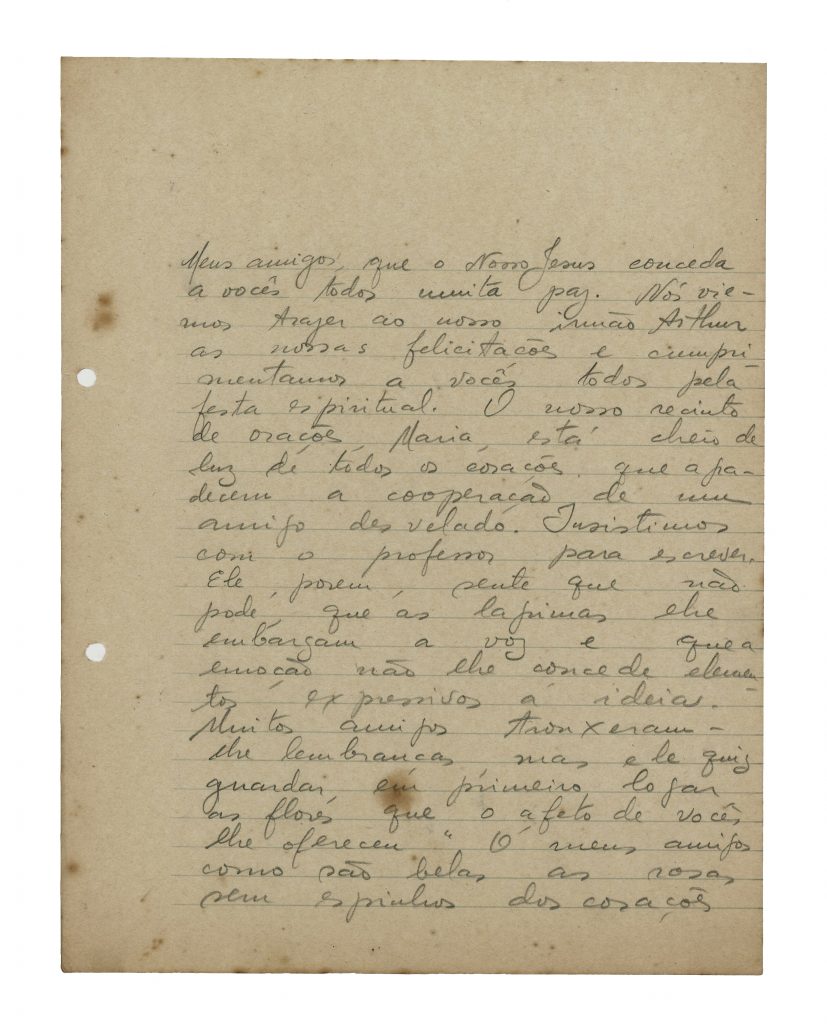 Meus amigos, que o Nosso Jesus conceda
a vocês todos muita paz. Nós vie-
mos trazer ao nosso irmão Arthur
as nossas felicitações e cumpri
mentamos a vocês todos pela
festa espiritual. O nosso recinto
de orações, Maria, está cheio de
luz de todos os corações que agra-
decem a cooperação de um
amigo desvelado. Insistimos
com o professor para escrever.
Ele, porem, sente que não
pode, que as lagrimas lhe
embargam a voz e que a
emoção não lhe concede elemen
tos expressivos á ideia.
Muitos amigos trouxeram-
lhe lembranças mas ele quiz
guardar, em primeiro logar
as flores que o afeto de vocês
lhe ofereceu". O' meus amigos
como são belas as rosas
sem espinhos dos corações